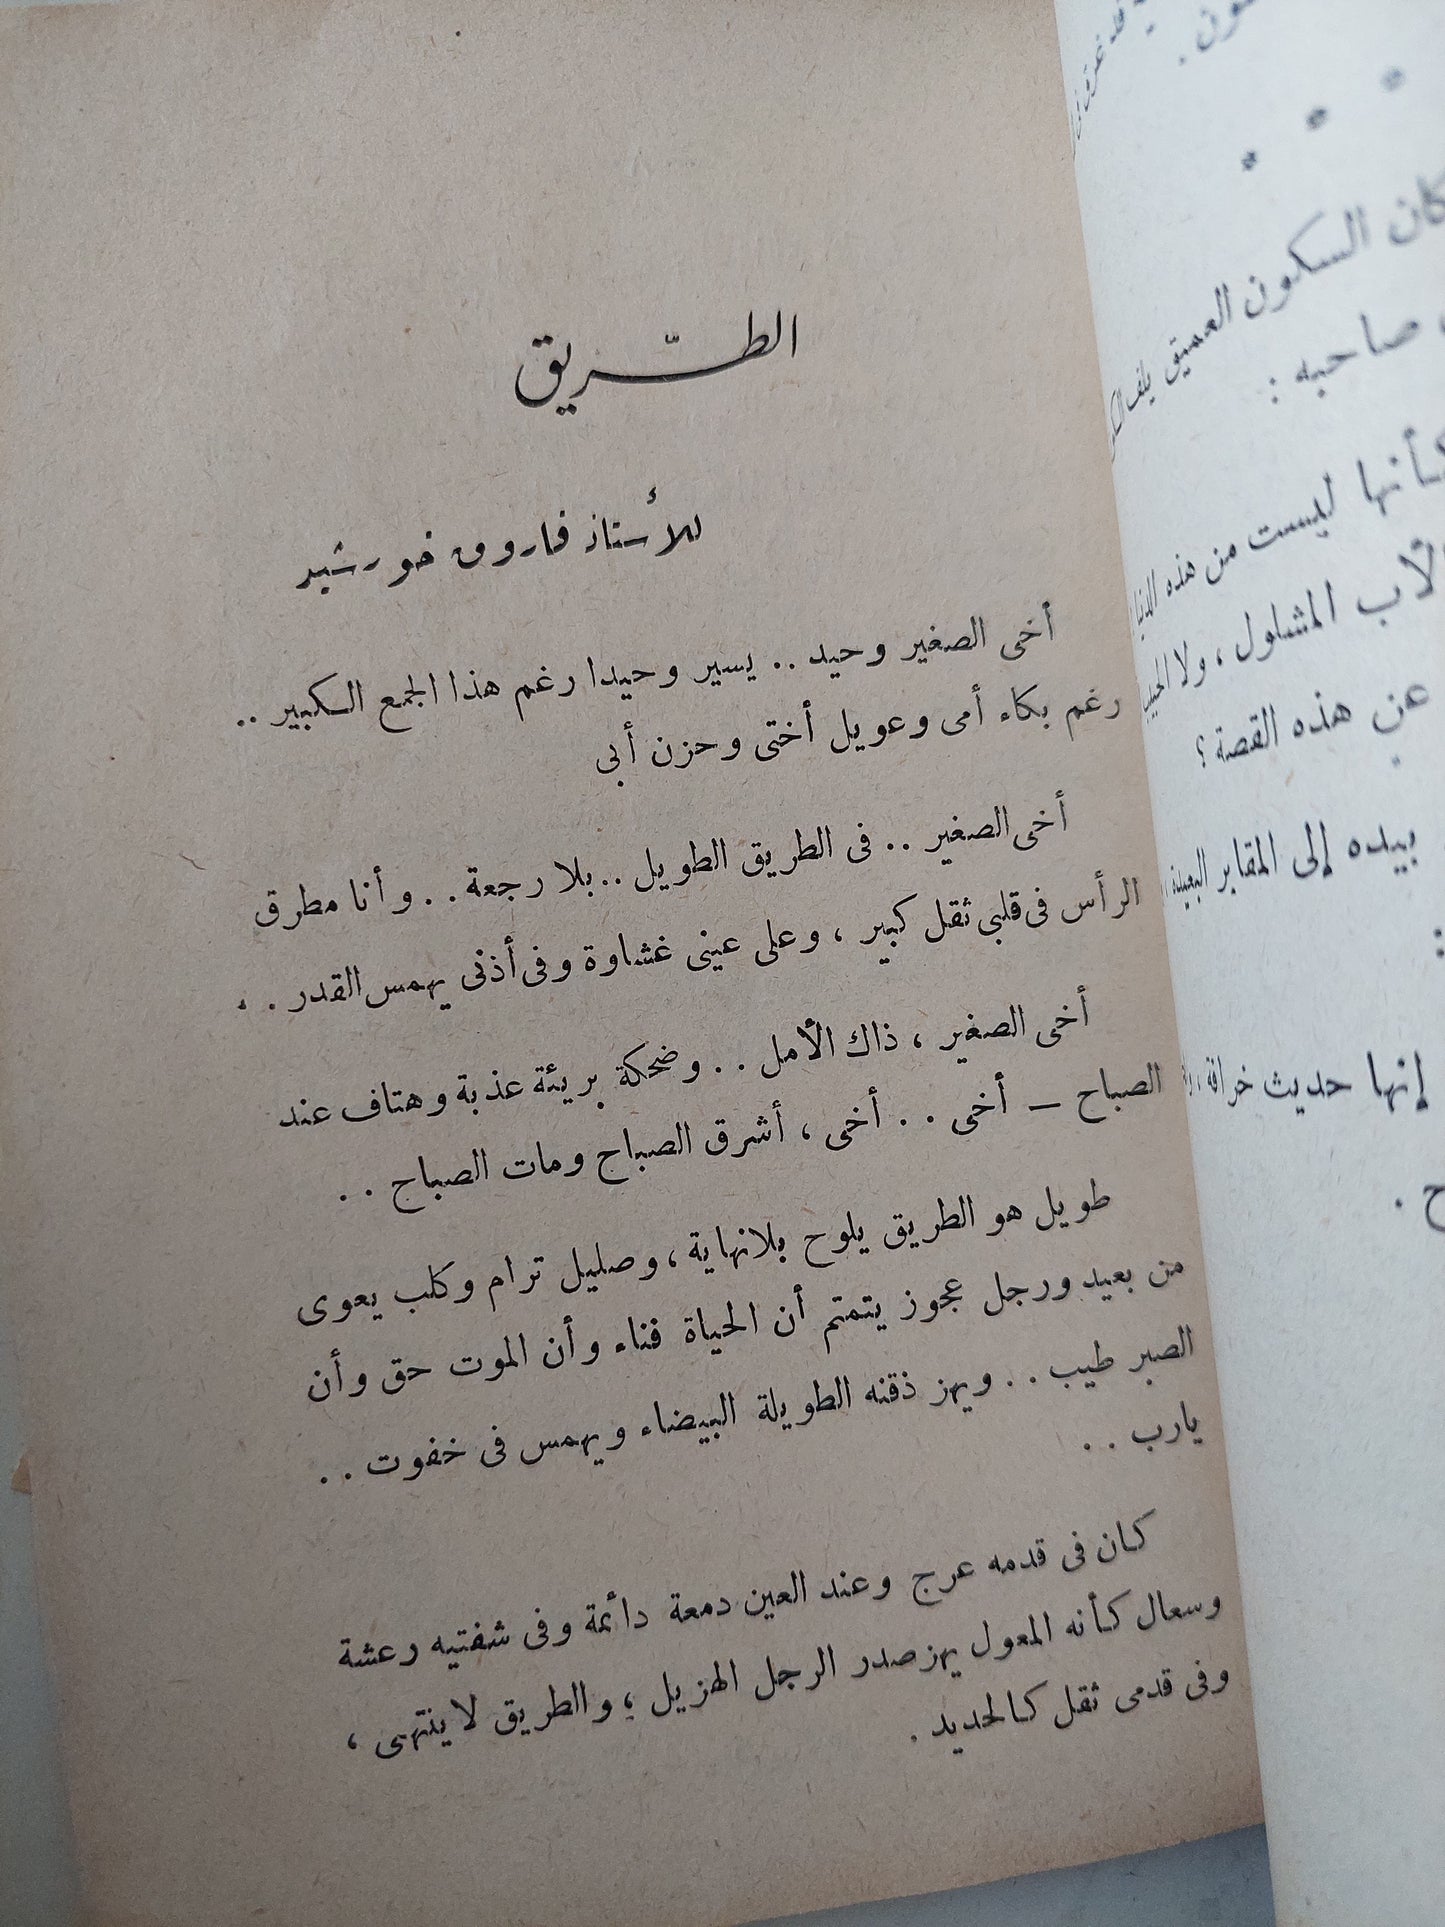 الطّريق
للأستاذ فاروق خورشيد
أخى الصغير وحيد .. يسير وحيدا رغم هذا الجمع الكبير ..
رغم بكاء أمى وعويل أختى وحزن أبى
أخى الصغير .. فى الطريق الطويل .. بلا رجعة . . وأنا مطرق
الرأس فى قلبى ثقل كبير ، وعلى عينى غشاوة وفى أذنى يهمس القدر . .
أخى الصغير ، ذاك الأمل . . وضحكة بريئة عذبة وهتاف عند
الصباح – أخى . . أخى ، أشرق الصباح ومات الصباح . .
طويل هو الطريق يلوح بلانهاية ، وصليل ترام وكلب يعوى
من بعيد ورجل عجوز يتمتم أن الحياة فناء وأن الموت حق وأن
الصبر طيب . . ويهز ذقنه الطويلة البيضاء ويهمس فى خفوت . .
يارب . .
كان فى قدمه عرج وعند العين دمعة دائمة وفى شفتيه رعشة
وسعال كأنه المعول يهز صدر الرجل الهزيل ، والطريق لا ينتهى ،
وفى قدمى ثقل كالحديد .
كان السكون العميق يلف
صاحبه :
كأنها ليست من هذه الدنيا
الأب المشلول ، ولا
عن هذه القصة ؟
بيده إلى المقابر البعيدة
إنها حديث خرافة